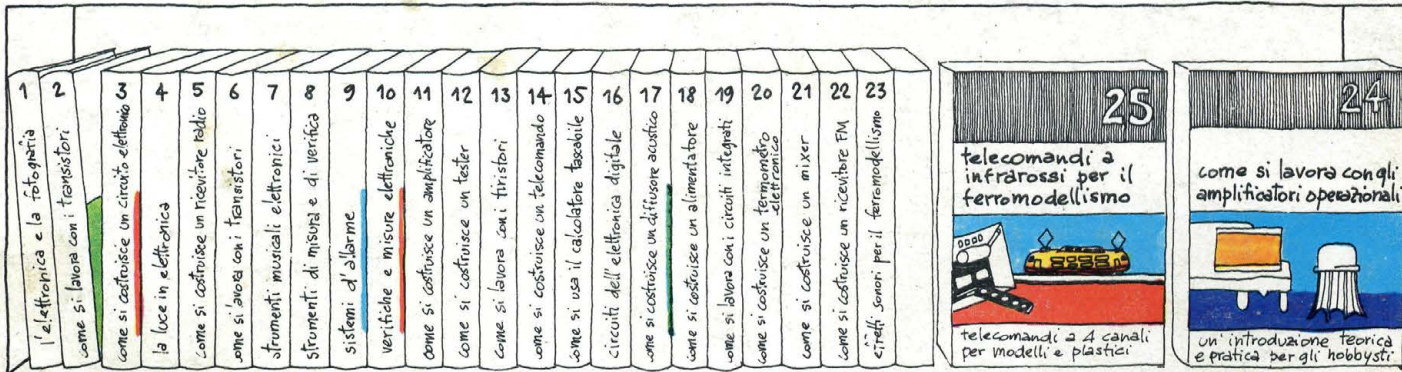 1
l'elettronica e la fotografia
2
come si lavora con i transistori
3
come si costruisce un circuito elettronico
4
la luce in elettronica
5
come si costruisce un ricevitore radio
6
come si lavora con i transistori
7
strumenti musicali elettronici
8
strumenti di misura e di verifica
9
sistemi d'allarme
10
verifiche e misure elettroniche
11
come si costruisce un amplificatore
12
come si costruisce un tester
13
come si lavora con i tiristori
14
come si costruisce un telecomando
15
come si usa il calcolatore tascabile
16
circuiti dell'elettronica digitale
17
come si costruisce un diffusore acustico
18
come si costruisce un alimentatore
19
come si lavora con i circuiti integrati
20
come si costruisce un termometro
elettronico
21
come si costruisce un mixer
22
come si costruisce un ricevitore FM
23
effetti sonori per il ferromodellismo
25
telecomandi a
infrarossi per il
ferromodellismo
telecomandi a 4 canali
per modelli e plastici
24
come si lavora con gli
amplificatori operazionali
un' introduzione teorica
e pratica per gli hobbysti